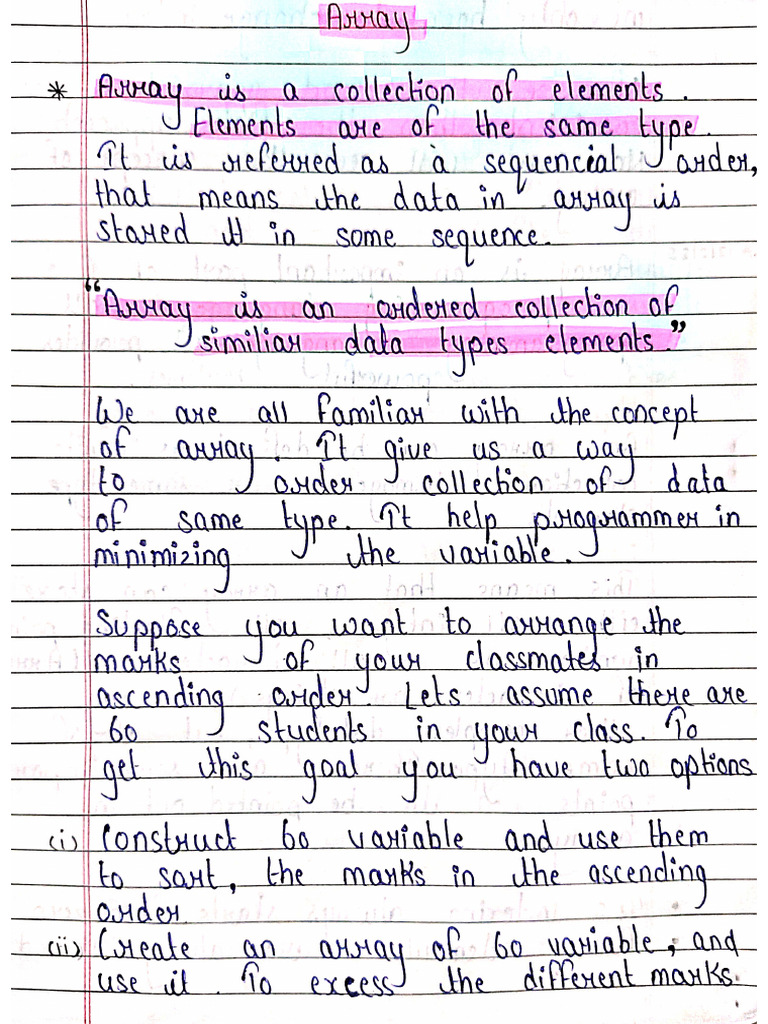 Array
* Array is a collection of elements.
Elements are of the same type.
It is referred as a sequencial order,
that means the data in array is
stored it in some sequence.
"Array is an ordered collection of
similiar data types elements."
We are all familiar with the concept
of array. It give us a way
to order collection of data
of same type. It help programmer in
minimizing the variable.
Suppose you want to arrange the
marks of your classmates in
ascending order. Lets assume there are
60 students in your class. To
get this goal you have two options
(i) Construct 60 variable and use them
to sort, the marks in the ascending
order
(ii) Create an array of 60 variable, and
use it. To excess the different marks.